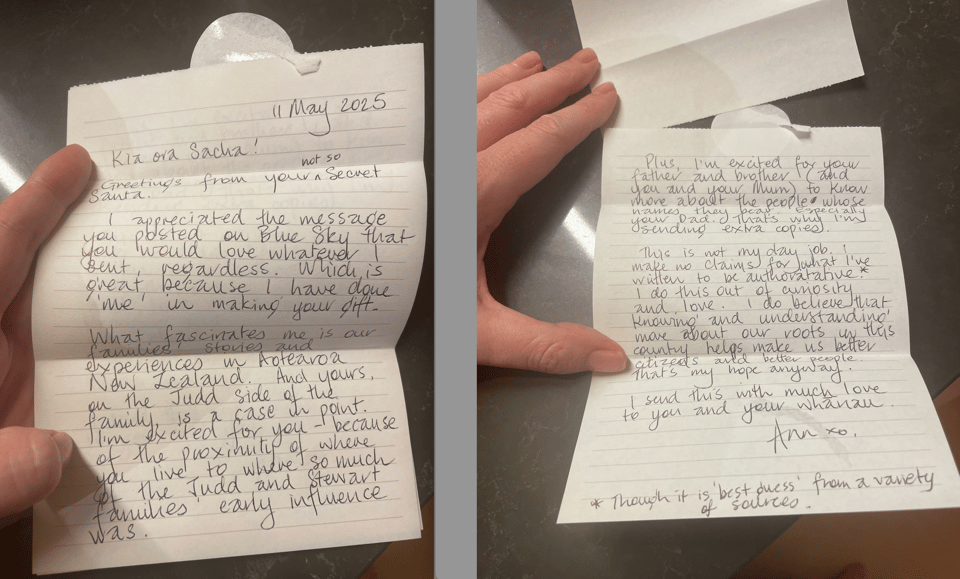 11 May 2025
Kia ora Sacha!
not so
Greetings from your ^ Secret
Santa.
I appreciated the message
you posted on Blue Sky that
you would love whatever I
sent, regardless. Which is
great, because I have done
'me' in making your gift.
What fascinates me is our
families' stories and
experiences in Aotearoa
New Zealand. And yours,
on the Judd side of the
family, is a case in point.
I'm excited for you - because
of the proximity of where
you live to where so much
of the Judd and Stewart
families' early influence
was.
Plus, I'm excited for your
father and brother (and
you and your Mum) to know
more about the people whose
names they bear. Especially
your Dad. That's why I'm
sending extra copies).
This is not my day job. I
make no claims for what I've
written to be authoratative*
I do this out of curiosity
and love. I do believe that
knowing and understanding
more about our roots in this
country helps make us better
citizens and better people.
That's my hope anyway.
I send this with much love
to you and your whānau.
Ann xo.
* Though it is 'best guess' from a variety
of sources.